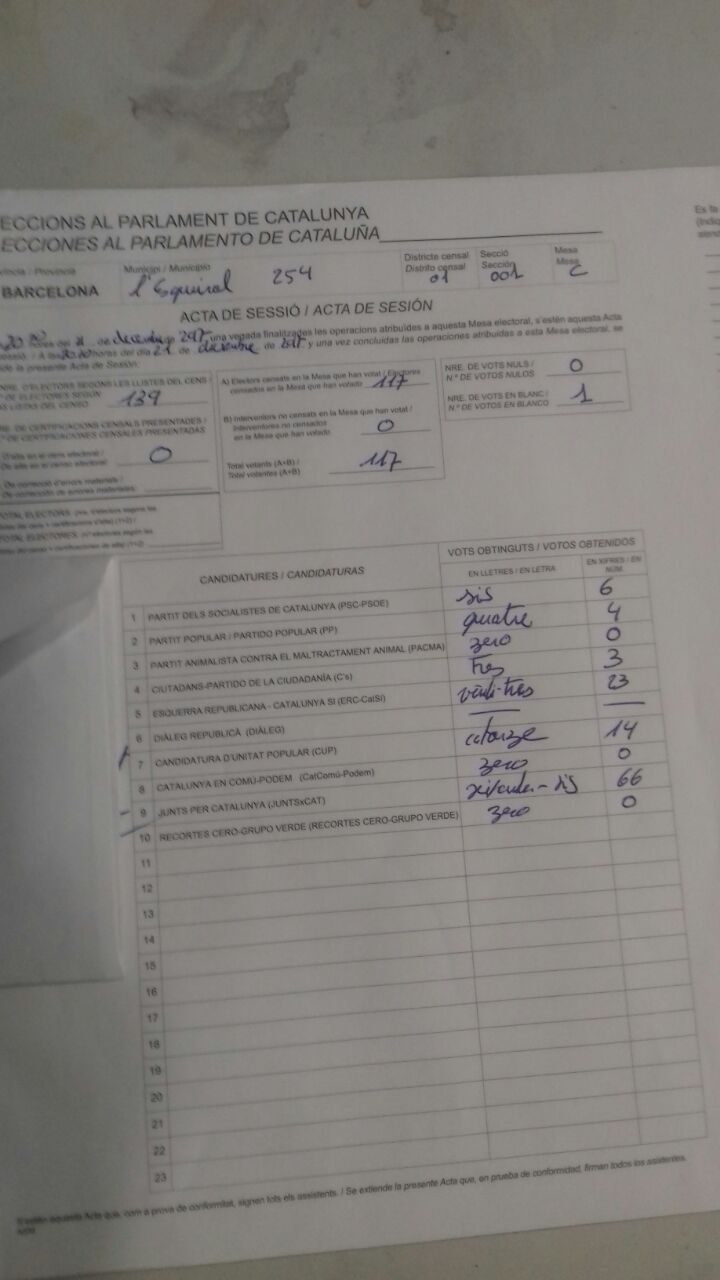 ECCIONS AL PARLAMENT DE CATALUNYA
ECCIONES AL PARLAMENTO DE CATALUÑA
Es fa
(Indic
Província / Provincia
BARCELONA
Municipi / Municipio
l'Esquirol 254
Districte censal
Distrito censal
01
Secció
Sección
001
Mesa
Mesa
C
ACTA DE SESSIÓ / ACTA DE SESIÓN
20:00 hores del 21 de desembre 2017, una vegada finalitzades les operacions atribuïdes a aquesta Mesa electoral, s'estén aquesta Acta
sessió. / A las 20:00 horas del día 21 de diciembre de 2017 y una vez concluidas las operaciones atribuidas a esta Mesa electoral, se
de la presente Acta de Sesión.
NRE. D'ELECTORS SEGONS LES LLISTES DEL CENS /
º DE ELECTORES SEGÚN
AS LISTAS DEL CENSO
139
RE. DE CERTIFICACIONS CENSALS PRESENTADES /
º DE CERTIFICACIONES CENSALES PRESENTADAS
D'alta en el cens electoral /
De alta en el censo electoral
0
De correcció d'errors materials /
De corrección de errores materiales
A) Electors censats en la Mesa que han votat / Electores
censados en la Mesa que han votado
117
B) Interventors no censats en la Mesa que han votat /
Interventores no censados
en la Mesa que han votado
0
Total votants (A+B) /
Total votantes (A+B)
117
NRE. DE VOTS NULS /
N.º DE VOTOS NULOS
0
NRE. DE VOTS EN BLANC /
N.º DE VOTOS EN BLANCO
1
CANDIDATURES / CANDIDATURAS
VOTS OBTINGUTS / VOTOS OBTENIDOS
EN LLETRES / EN LETRA
EN XIFRES / EN NÚM.
1 PARTIT DELS SOCIALISTES DE CATALUNYA (PSC-PSOE) sis 6
2 PARTIT POPULAR / PARTIDO POPULAR (PP) quatre 4
3 PARTIT ANIMALISTA CONTRA EL MALTRACTAMENT ANIMAL (PACMA) zero 0
4 CIUTADANS-PARTIDO DE LA CIUDADANÍA (C's) tres 3
5 ESQUERRA REPUBLICANA - CATALUNYA SÍ (ERC-CatSí) vint-i-tres 23
6 DIÀLEG REPUBLICÀ (DIÀLEG) — —
7 CANDIDATURA D'UNITAT POPULAR (CUP) catorze 14
8 CATALUNYA EN COMÚ-PODEM (CatComú-Podem) zero 0
9 JUNTS PER CATALUNYA (JUNTSxCAT) xixanta-sis 66
10 RECORTES CERO-GRUPO VERDE (RECORTES CERO-GRUPO VERDE) zero 0
11
12
13
14
15
16
17
18
19
20
21
22
23
S'estén aquesta Acta que, com a prova de conformitat, signen tots els assistents. / Se extiende la presente Acta que, en prueba de conformidad, firman todos los asistentes.